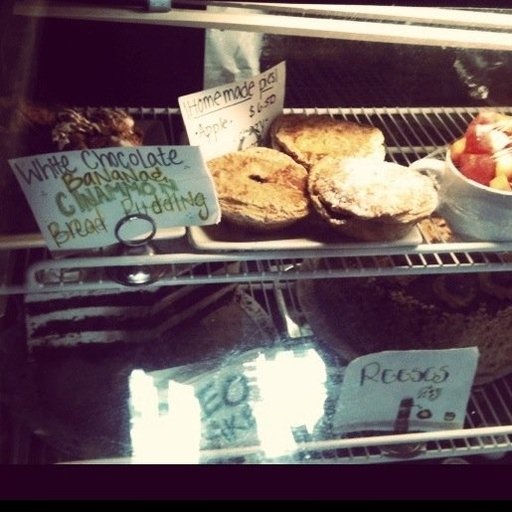 Homemade pies!
- Apple -
$6.50
White Chocolate
BANANA
CINAMMON
Bread Pudding
REESES